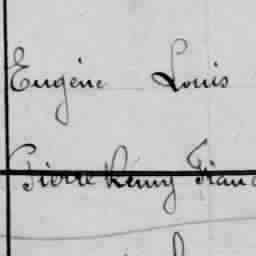 Eugène Louis
Pierre Rémy Franc